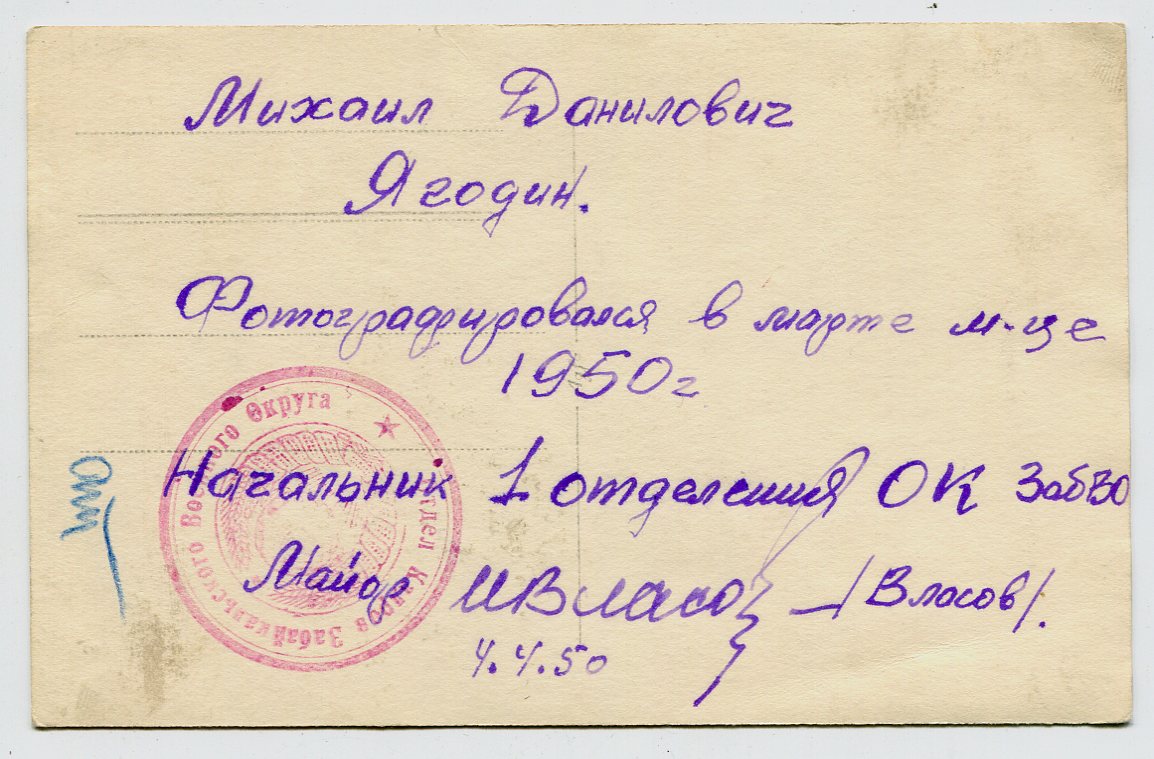 Михаил Данилович
Ягодин.
Фотографировался в марте м-це
1950г
Начальник 1 отделения ОК ЗабВО
Майор ИВласо /Власов/.
4.4.50
Отдел Кадров Забайкальского Военного Округа